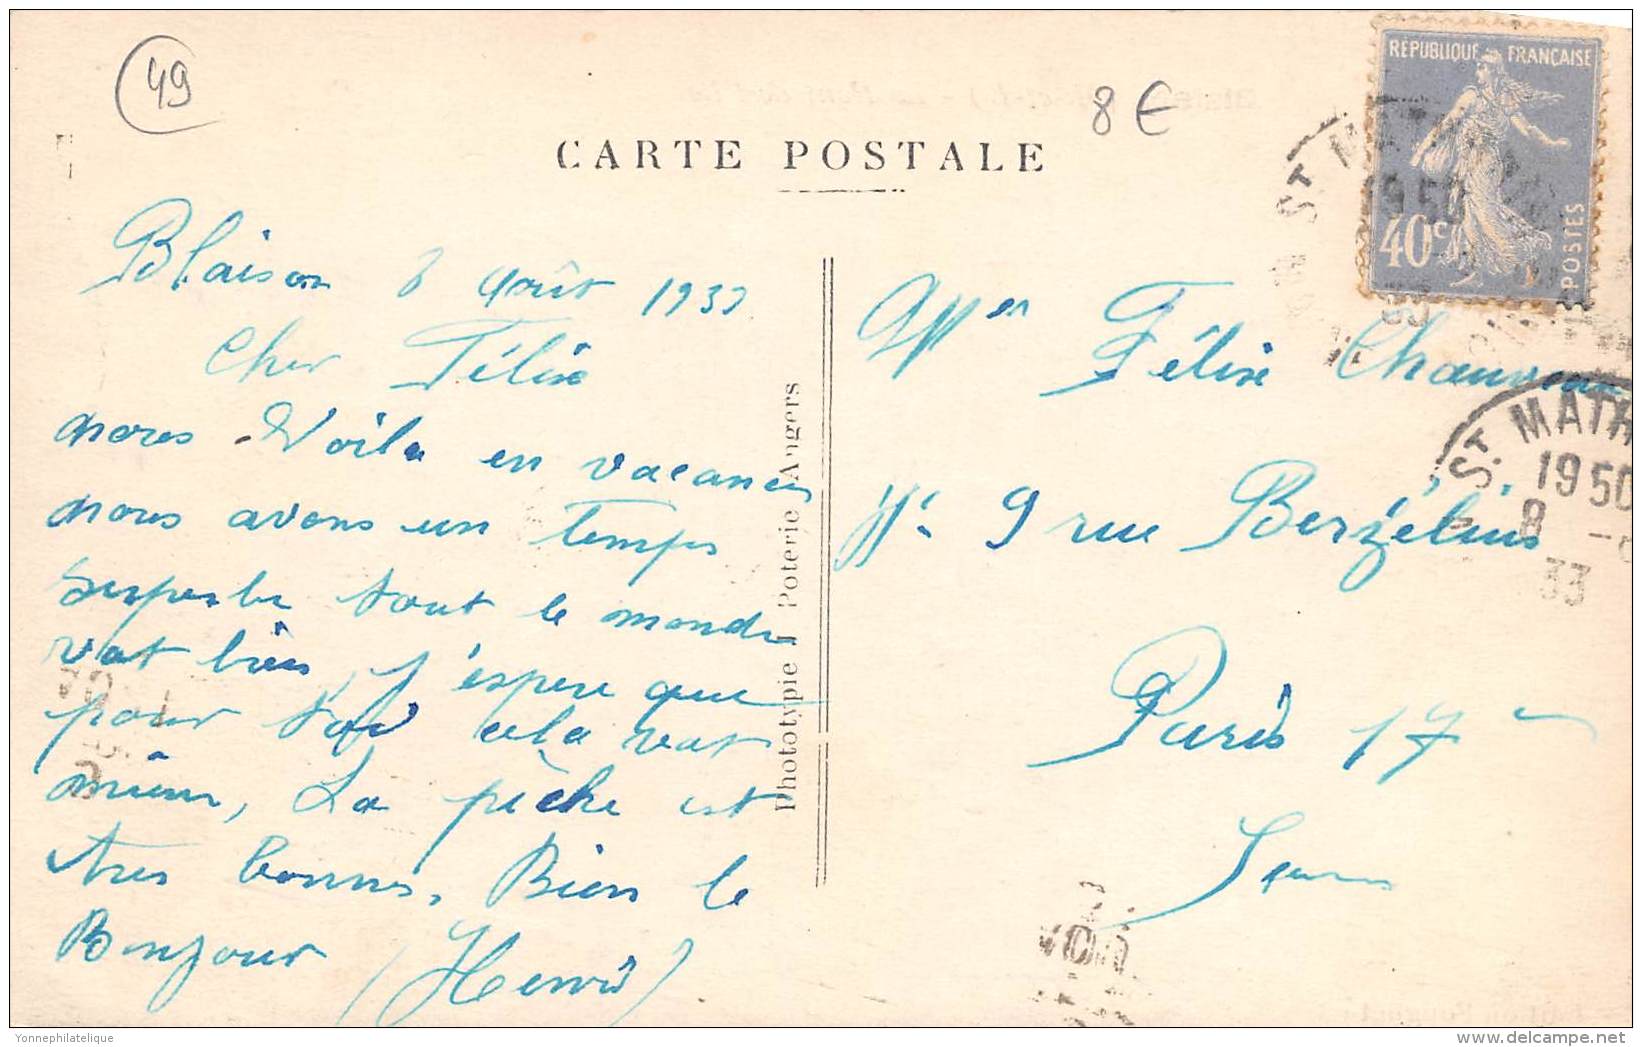 49
8€
CARTE POSTALE
RÉPUBLIQUE FRANÇAISE
40c
POSTES
ST MATH
1950
33
Blaison 8 Août 1933
Cher Félix
nores Voila en vacances
nous avons un temps
superbe tout le monde
vat bien, J'espere que
pour toi cela vat
mieux, La pêche est
tres bonnes. Bien le
Bonjour (Henri)
Phototypie J Poterie Angers
Mer Félix Chauveau
No 9 rue Berzélius
Paris 17
ST. MATH
1950
8 -8
33
Yonnephilatelique
delcampe.net